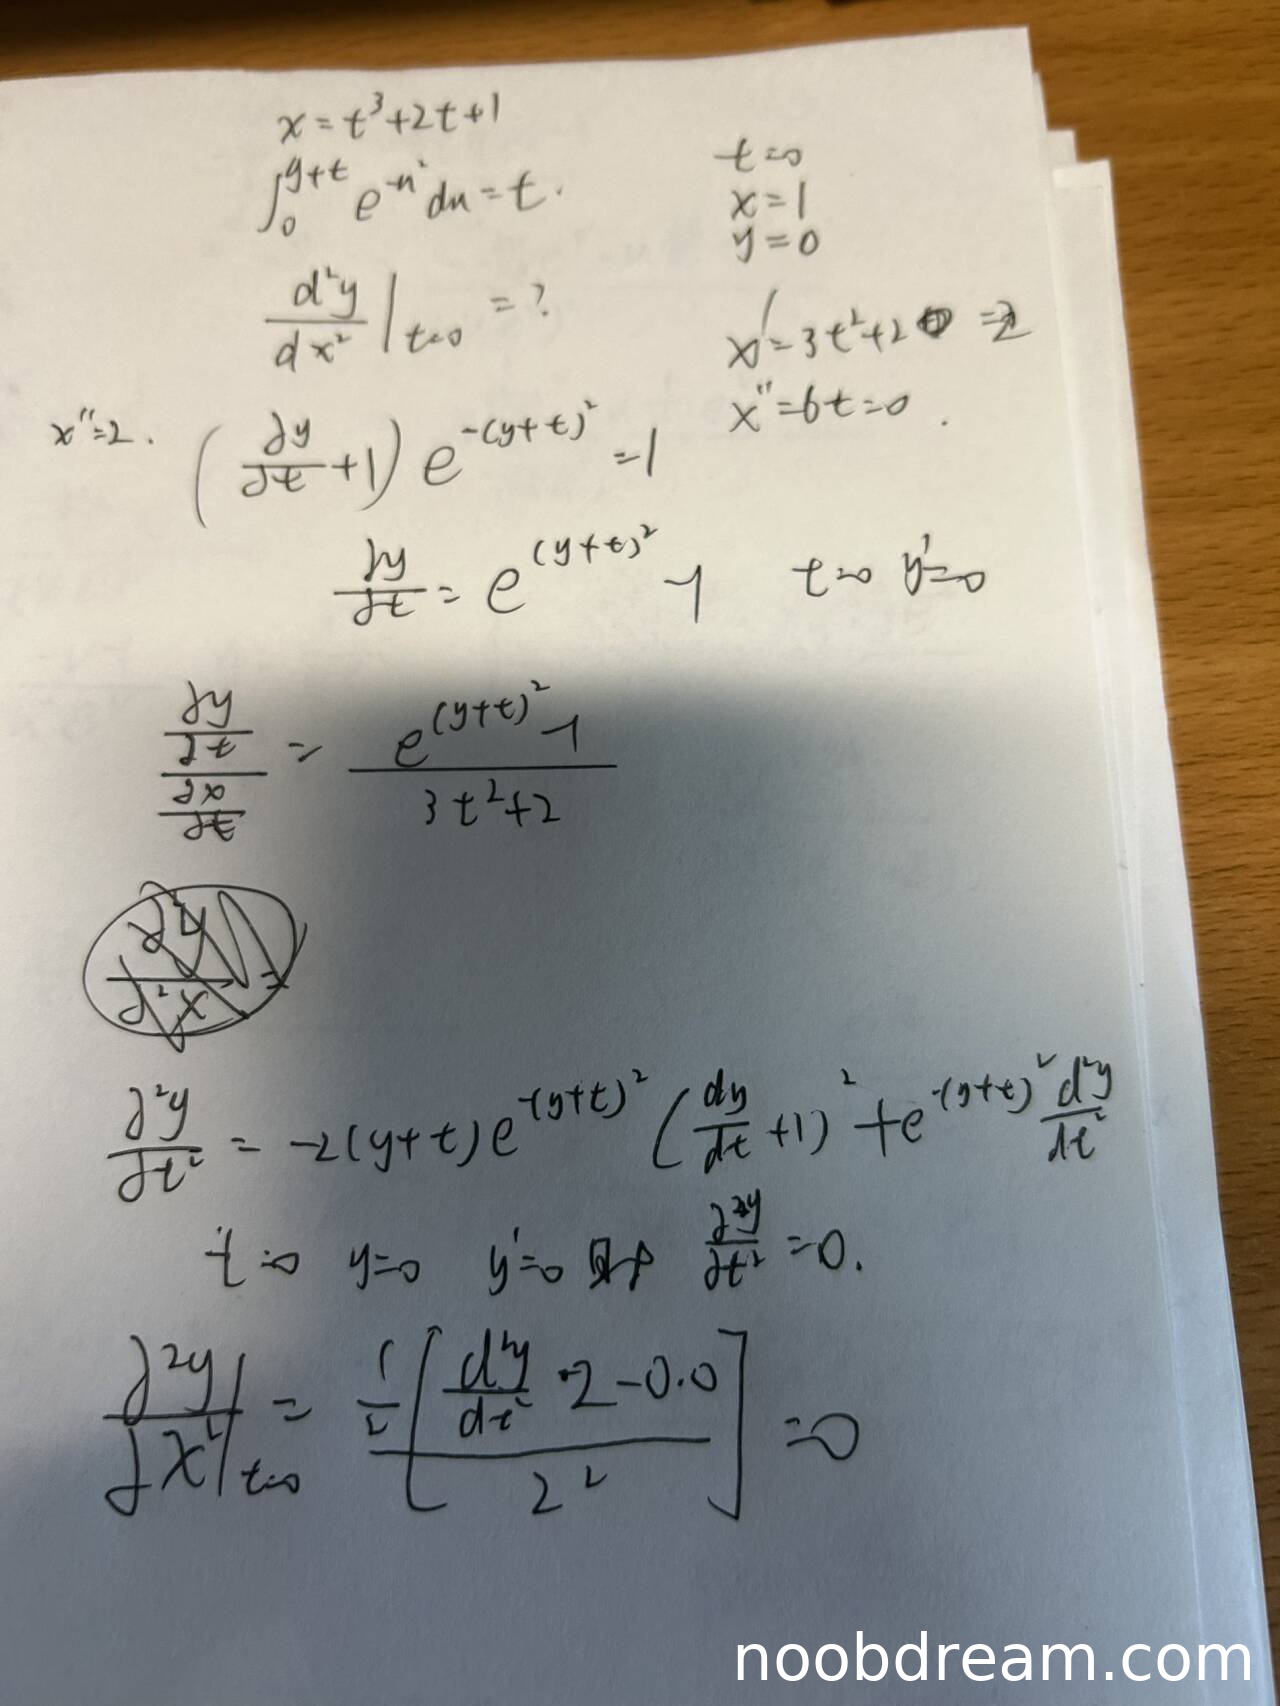 x = t³+2t+1
∫₀^(y+t) e^(-u²) du = t.
t=0
x=1
y=0
d²y/dx² |t=0 = ?
x' = 3t²+2 = 2
x'' = 6t = 0.
x''=2.
(∂y/∂t + 1) e^(-(y+t)²) = 1
∂y/∂t = e^((y+t)²) - 1 t=0 y'=0
(∂y/∂t)/(∂x/∂t) = (e^((y+t)²) - 1)/(3t²+2)
∂²y/∂t² = -2(y+t) e^(-(y+t)²) (dy/dt + 1)² + e^(-(y+t)²) d²y/dt²
t=0 y=0 y'=0 ∂²y/∂t² = 0.
∂²y/∂x² |t=0 = 1/2 [(d²y/dt² · 2 - 0·0)/2²] = 0
noobdream.com